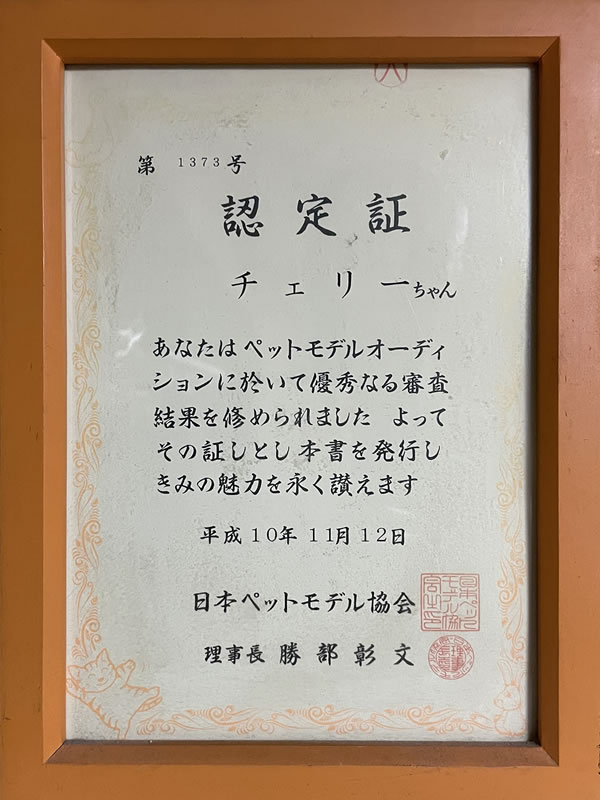 第 1373 号
認定証
チェリーちゃん
あなたはペットモデルオーディ
ションに於いて優秀なる審査
結果を修められました よって
その証しとし本書を発行し
きみの魅力を永く讃えます
平成10年11月12日
日本ペットモデル協会
理事長 勝部彰文